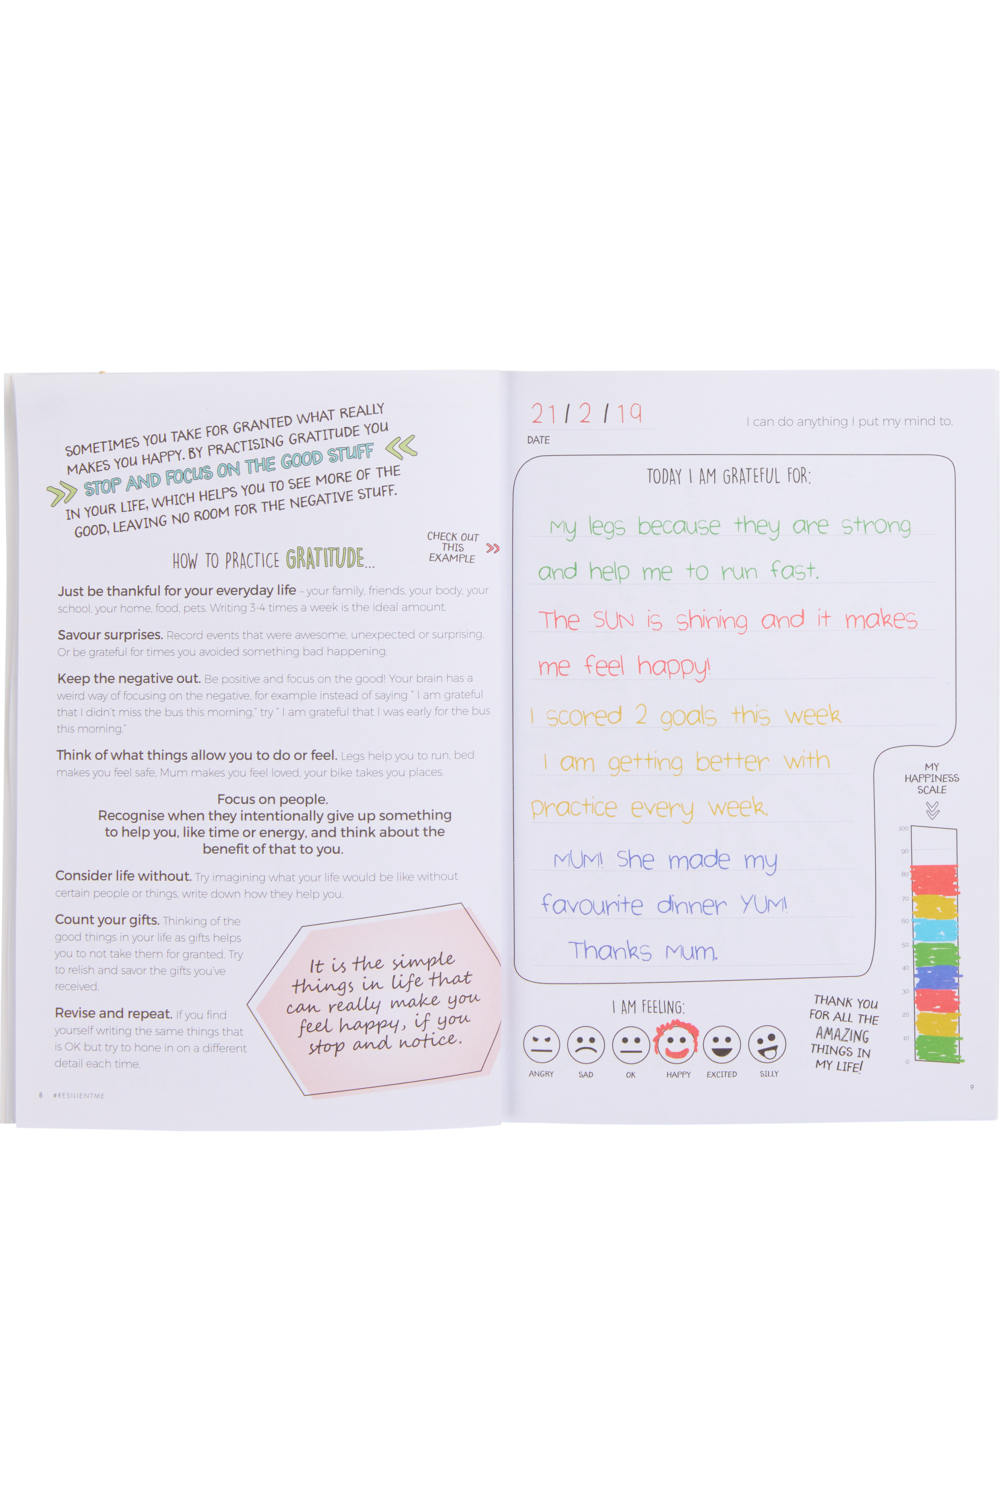 SOMETIMES YOU TAKE FOR GRANTED WHAT REALLY
MAKES YOU HAPPY. BY PRACTISING GRATITUDE YOU
STOP AND FOCUS ON THE GOOD STUFF
IN YOUR LIFE, WHICH HELPS YOU TO SEE MORE OF THE
GOOD, LEAVING NO ROOM FOR THE NEGATIVE STUFF.
HOW TO PRACTICE GRATITUDE...
CHECK OUT
THIS
EXAMPLE
Just be thankful for your everyday life - your family, friends, your body, your
school, your home, food, pets. Writing 3-4 times a week is the ideal amount.
Savour surprises. Record events that were awesome, unexpected or surprising.
Or be grateful for times you avoided something bad happening.
Keep the negative out. Be positive and focus on the good! Your brain has a
weird way of focusing on the negative, for example instead of saying " I am grateful
that I didn't miss the bus this morning," try " I am grateful that I was early for the bus
this morning."
Think of what things allow you to do or feel. Legs help you to run, bed
makes you feel safe, Mum makes you feel loved, your bike takes you places.
Focus on people.
Recognise when they intentionally give up something
to help you, like time or energy, and think about the
benefit of that to you.
Consider life without. Try imagining what your life would be like without
certain people or things, write down how they help you.
Count your gifts. Thinking of the
good things in your life as gifts helps
you to not take them for granted. Try
to relish and savor the gifts you've
received.
Revise and repeat. If you find
yourself writing the same things that
is OK but try to hone in on a different
detail each time.
It is the simple
things in life that
can really make you
feel happy, if you
stop and notice.
8 #RESILIENTME
21/2/19
DATE
I can do anything I put my mind to.
TODAY I AM GRATEFUL FOR:
My legs because they are strong
and help me to run fast.
The SUN is shining and it makes
me feel happy!
I scored 2 goals this week
I am getting better with
practice every week.
MUM! She made my
favourite dinner YUM!
Thanks Mum.
MY
HAPPINESS
SCALE
100
90
80
70
60
50
40
30
20
10
0
I AM FEELING:
ANGRY SAD OK HAPPY EXCITED SILLY
THANK YOU
FOR ALL THE
AMAZING
THINGS IN
MY LIFE!
9